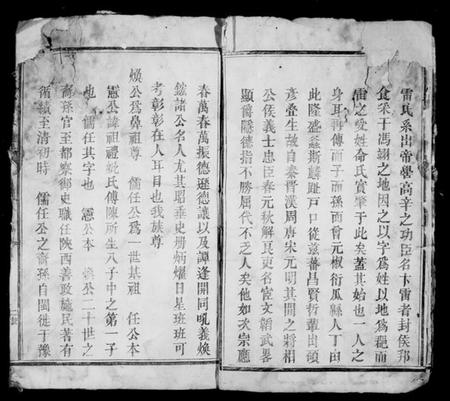 雷氏系出帝嚳高辛之功臣名卞雷者封侯邦
食采于馮翊之地因之以字爲姓以地爲郡而
雷之受姓命氏實肇于此矣蓋其始也一人之
身耳再傳而子而孫而曾元椒衍瓜緜人丁由
此隆盛螽斯麟趾戸口從茲蕃昌賢哲輩出碩
彦叠生故自秦晋漢周唐宋元明其間之將相
公侯義士忠臣春元秋解及更名宦文翰武畧
顯爵隱德指不勝屈代不乏人矣他如次宗應
春萬春萬振德遜德讓以及譚逢開同吼義煥
鋐諸公名人尤其昭垂史册炳燿日星班班可
考彰彰在人耳目也我族尊
煥公爲鼻祖尊 任公爲一世基祖 任公本
憲公諱祖禮姚氏傳陳所生八子中之第一子
也 儒任其字也 憲公本 煥公二十世之
裔孫官至都察御史職任陝西善政施民著有
循績至清初時 儒任公之裔孫自閩徙于豫